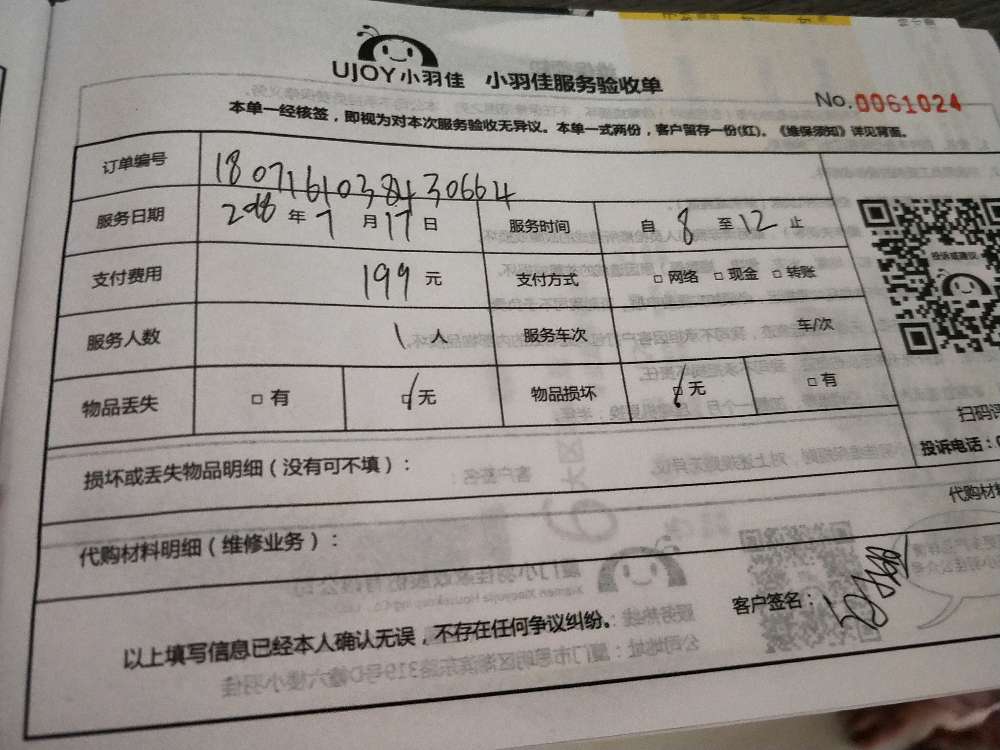 UJOY小羽佳 小羽佳服务验收单
No.0061024
本单一经核签，即视为对本次服务验收无异议。本单一式两份，客户留存一份(红)。《维保须知》详见背面。
订单编号 1807161038430664
服务日期 2018 年 7 月 17 日 服务时间 自 8 至 12 止
支付费用 199 元 支付方式 □ 网络 □ 现金 □ 转账
服务人数 1 人 服务车次 车/次
物品丢失 □ 有 □ 无 物品损坏 □ 无 □ 有
投诉或建议
扫码
投诉电话：
损坏或丢失物品明细（没有可不填）：
代购材料
代购材料明细（维修业务）：
客户签名：
以上填写信息已经本人确认无误，不存在任何争议纠纷。